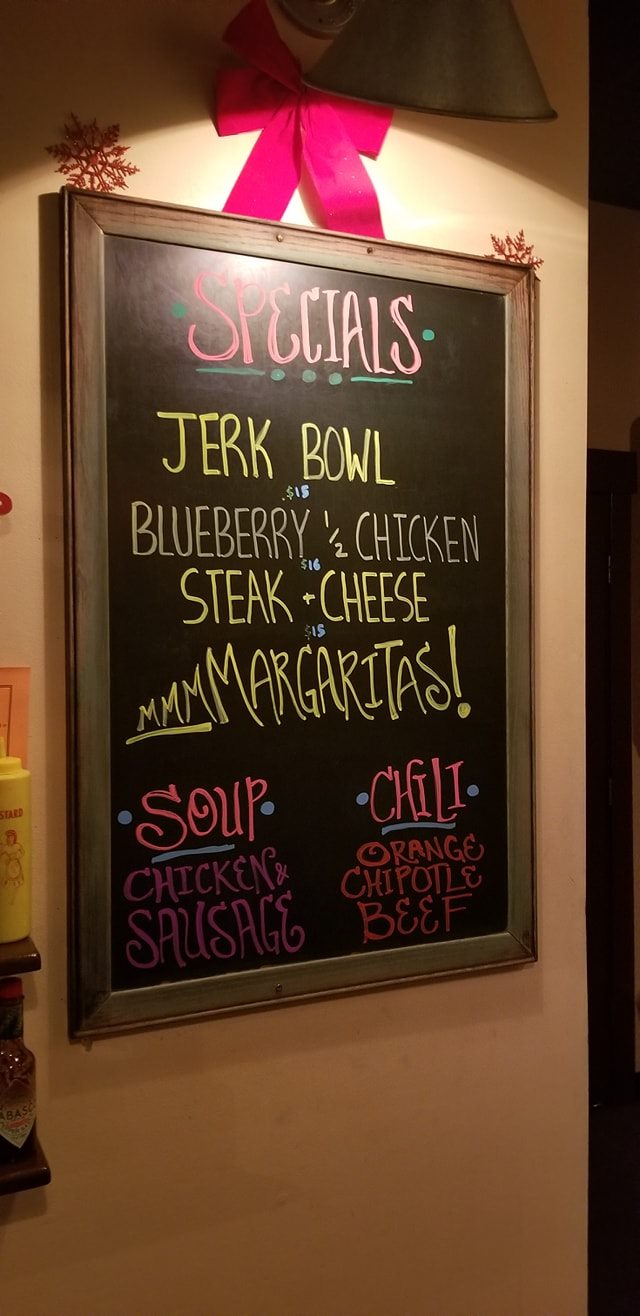 SPECIALS
JERK BOWL
$15
BLUEBERRY 1/2 CHICKEN
$16
STEAK + CHEESE
$15
MMMMARGARITAS!
SOUP
CHICKEN &
SAUSAGE
CHILI
ORANGE
CHIPOTLE
BEEF
STARD
ABASC